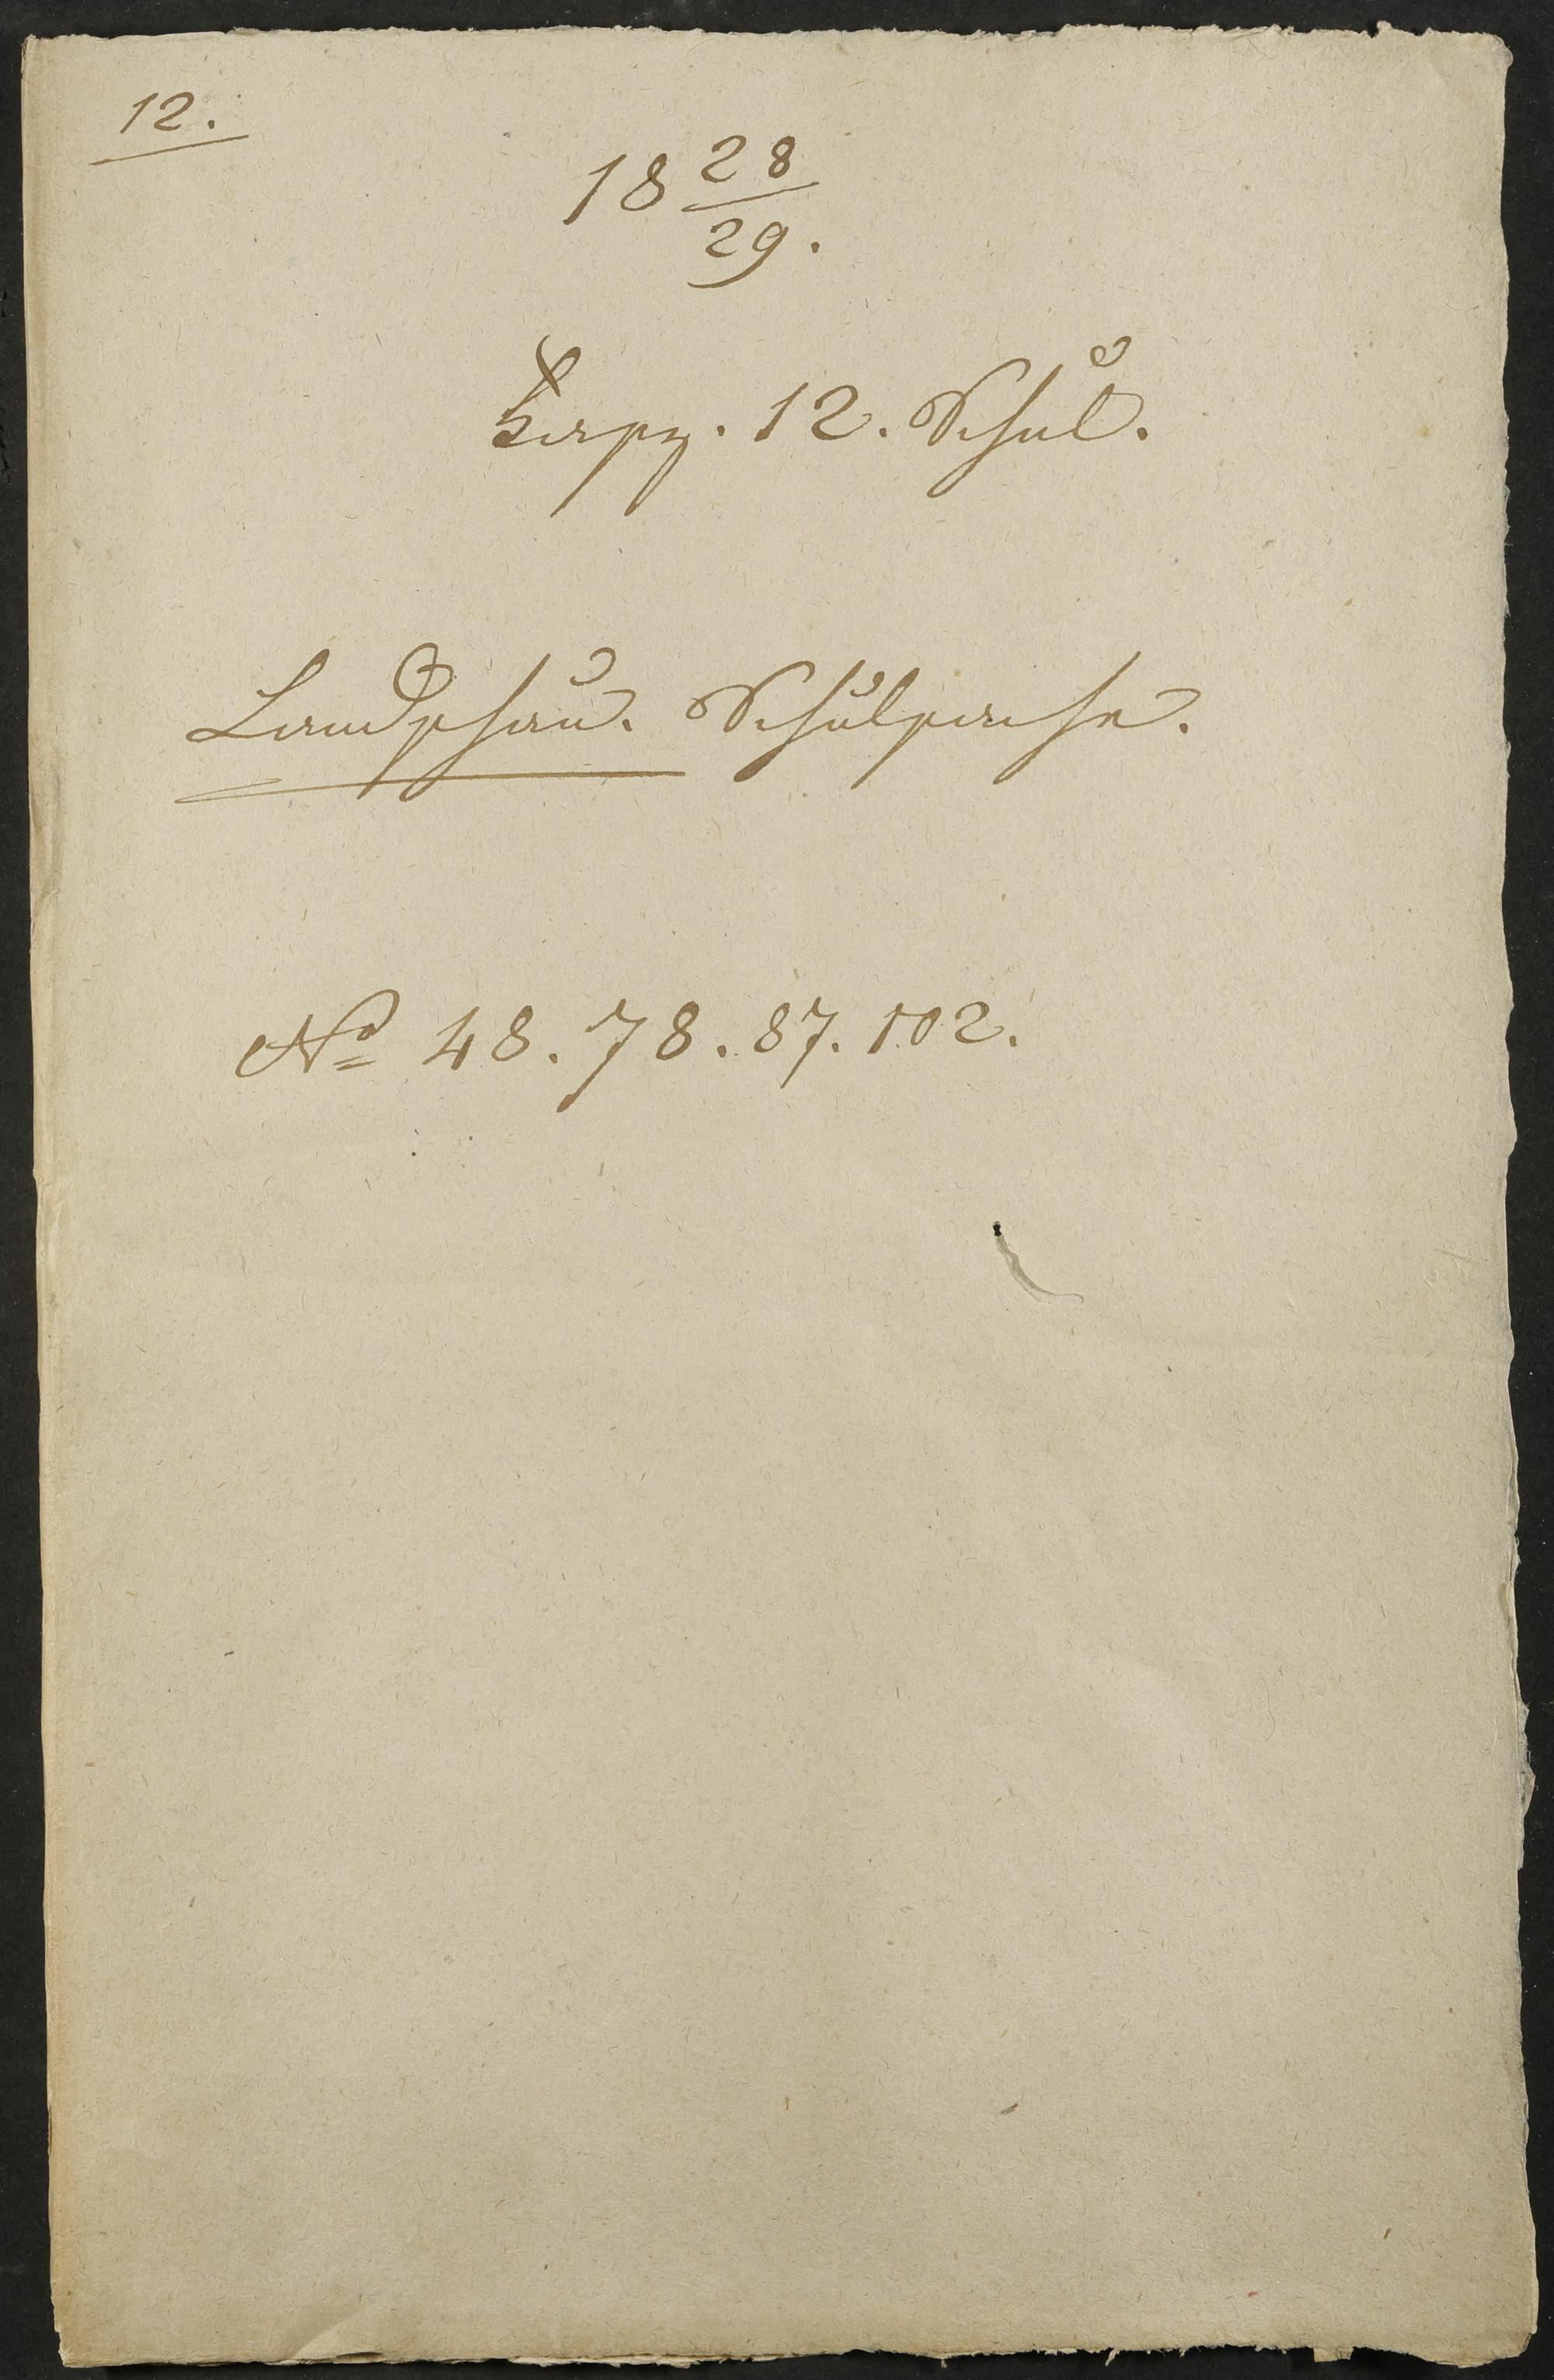 12.
18 28/29.
Fasz. 12. Schul.
Landshau. Schulsache.
No 48. 78. 87. 102.